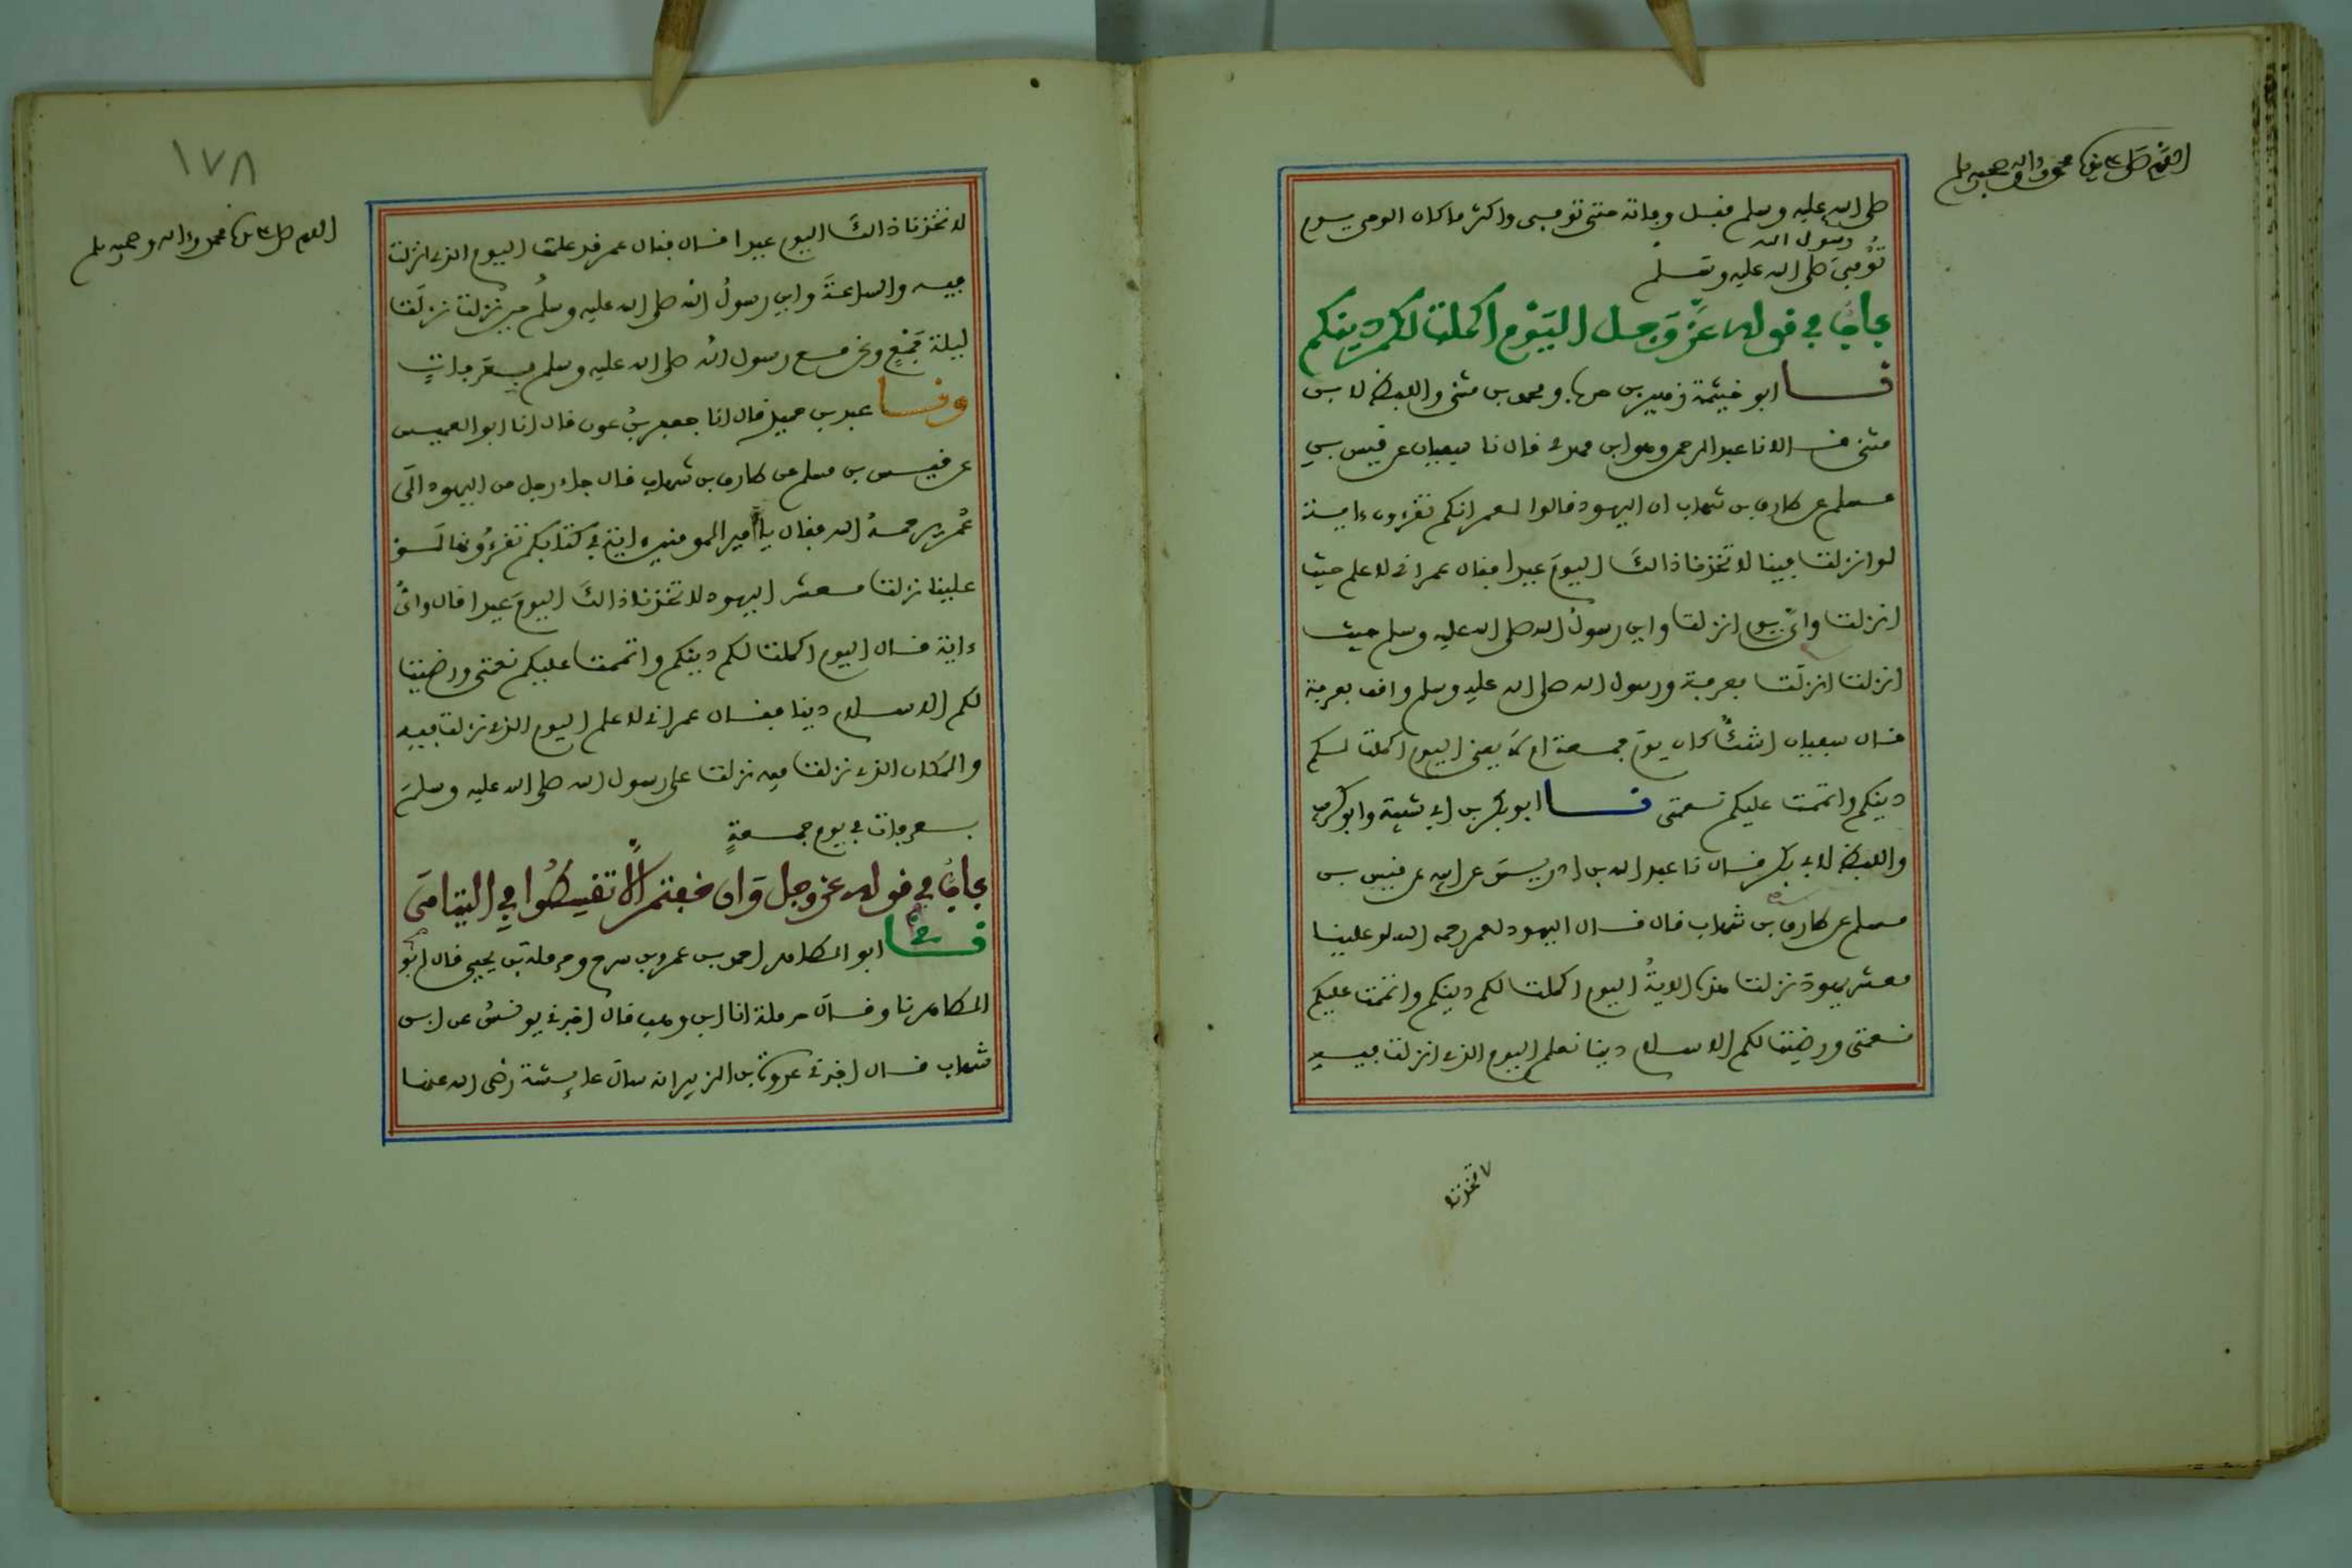 اللهم صل على سيدنا محمد واله وصحبه وسلم
صلى الله عليه وسلم قبل وفاته حتى توفي واكثر ما كان الوحي يوم
توفي رسول الله صلى الله عليه وسلم
باب في قوله عز وجل اليوم اكملت لكم دينكم
نا ابو خيثمة زهير بن حرب ومحمد بن مثنى واللفظ لابن
مثنى قالا نا عبد الرحمن وهو ابن مهدي قال نا سفيان عن قيس بن
مسلم عن طارق بن شهاب ان اليهود قالوا لعمر انكم تقرءون ءاية
لو انزلت فينا لاتخذنا ذالك اليوم عيدا فقال عمر اني لاعلم حيث
انزلت واي يوم انزلت واين رسول الله صلى الله عليه وسلم حيث
انزلت انزلت بعرفة ورسول الله صلى الله عليه وسلم واقف بعرفة
قال سفيان اشك كان يوم جمعة ام لا يعني اليوم اكملت لكم
دينكم واتممت عليكم نعمتي نا ابو بكر بن ابي شيبة وابو كريب
واللفظ لابي بكر قال نا عبد الله بن ادريس عن ابيه عن قيس بن
مسلم عن طارق بن شهاب قال قال اليهود لعمر رحمه الله لو علينا
معشر يهود نزلت هذه الاية اليوم اكملت لكم دينكم واتممت عليكم
نعمتي ورضيت لكم الاسلام دينا نعلم اليوم الذي انزلت فيه
لاتخذنا
١٧٨
اللهم صل على سيدنا محمد وءاله وصحبه وسلم
لاتخذنا ذالك اليوم عيدا قال فقال عمر قد علمت اليوم الذي انزلت
فيه والساعة واين رسول الله صلى الله عليه وسلم حين نزلت نزلت
ليلة جمع ونحن مع رسول الله صلى الله عليه وسلم بعرفات
ونا عبد بن حميد قال انا جعفر بن عون قال انا ابو العميس
عن قيس بن مسلم عن طارق بن شهاب قال جاء رجل من اليهود الى
عمر رحمه الله فقال يا امير المومنين اية في كتابكم تقرءونها لو
علينا نزلت معشر اليهود لاتخذنا ذالك اليوم عيدا قال واي
ءاية قال اليوم اكملت لكم دينكم واتممت عليكم نعمتي ورضيت
لكم الاسلام دينا فقال عمر اني لاعلم اليوم الذي نزلت فيه
والمكان الذي نزلت فيه نزلت على رسول الله صلى الله عليه وسلم
بعرفات في يوم جمعة
باب في قوله عز وجل وان خفتم الا تقسطوا في اليتامى
نا ابو الطاهر احمد بن عمرو بن سرح وحرملة بن يحيى قال ابو
الطاهر نا وقال حرملة انا ابن وهب قال اخبرني يونس عن ابن
شهاب قال اخبرني عروة بن الزبير انه سال عايشة رضي الله عنها